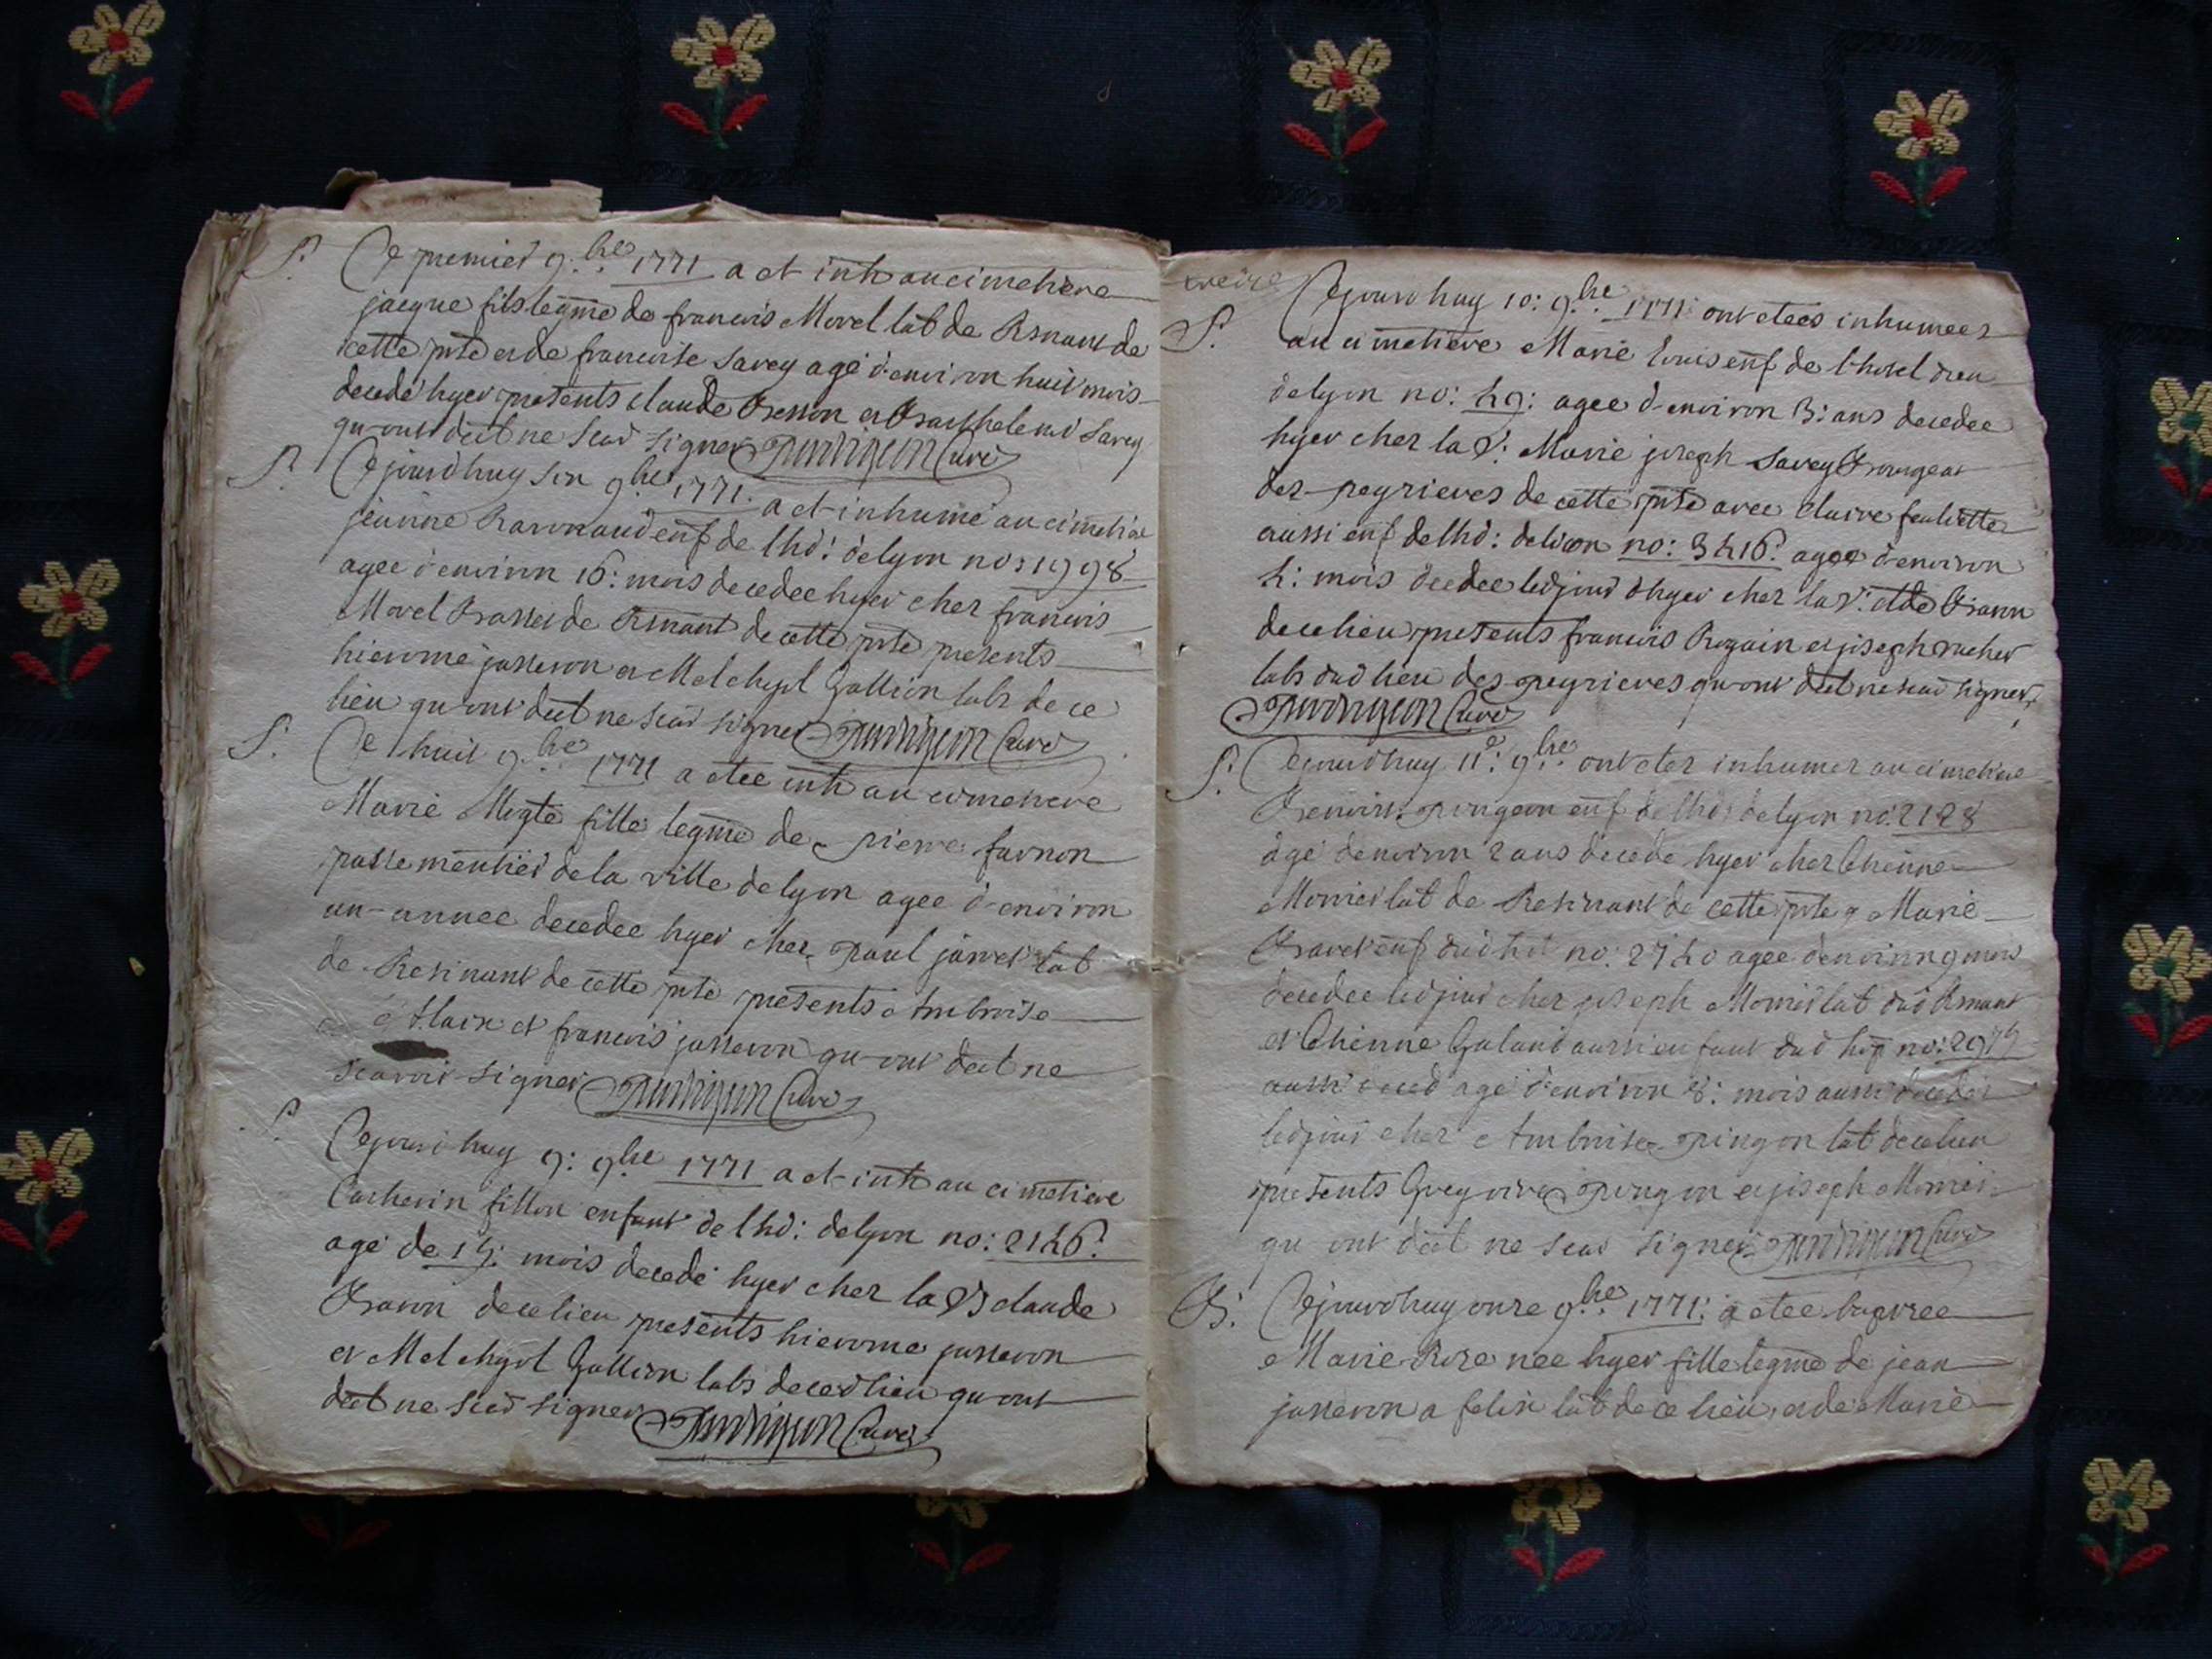 S. Ce premier 9.bre 1771 a et inh au cimetiere
jacque fils legme de francois Morel lab de Rsnant de
cette pte et de francoise Savey agé d'environ huit mois
decedé hyer presents claude Besson et Barthelemi Savey
qu'ont delt ne scad signer Curé
S. Cejourdhuy six 9bre 1771. a et inhumé au cimetiere
jeanne enf de lhd: delyon no: 1998
agee d'environ 16: mois decedee hyer cher francois
Morel de Rsnant de cette pte presents
hierome jasseron et Melchyol Gallion labs de ce
lieu qu ont delt ne scad signer Curé
S. Ce huit 9.bre 1771 a etee inh au cimetiere
Marie Mgte fille legme de pierre farnon
passementier de la ville de lyon agee d'environ
un-annee decedee hyer cher paul janet lab
de Resinant de cette pte presents Ambroise
Alaix et francois jasseron qu-ont delt ne
scavoir signer Curé
S. Cejourdhuy 9: 9bre 1771 a et inh au cimetiere
Catherin fillon enfant de lhd: delyon no: 2146.
agé de 15: mois decedé hyer cher la Vs claude
de ce lieu presents hierome jasseron
et Melchyol Gallion labs decedlieu qu-ont
delt ne scad signer Curé
S. Cejourdhuy 10: 9.bre 1771: ont etees inhumees
au cimetiere Marie Louis enf de l'hotel dieu
delyon no: 49: agee d'environ 3: ans decedee
hyer cher la V: Marie joseph Savey
des peyrieres de cette pte avec Claire feulliette
aussi enf delhd: delion no: 3416. agee d'environ
4: mois decedee ledjour dhyer cher la V: clde
de ce lieu presents francois Rozain et joseph
labs dud lieu des peyrieres qu-ont delt ne scad signer
Curé
S. Cejourdhuy 11e: 9.bre ont etez inhumez au cimetiere
Benoit pingeon enf de lhd: delyon no: 2128
agé denviron 2 ans decedé hyer cher Etienne
Monier lab de Resinant de cette pte Marie
enf dud hot no: 2740 agee denviron 9 mois
decedee ledjour cher joseph Monier lab dud Rsnant
et Etienne Galand aussi enfant dud hop no: 2975
aussi agé d'environ 8: mois aussi decedé
ledjour cher Ambroise pingon lab de celieu
presents Gregoire pingon et joseph Monier
qu ont delt ne scad signer Curé
B. Cejourdhuy onze 9.bre 1771: a etee baptizee
Marie Roze nee hyer fille legme de jean
jasseron a felix lab de ce lieu, et de Marie